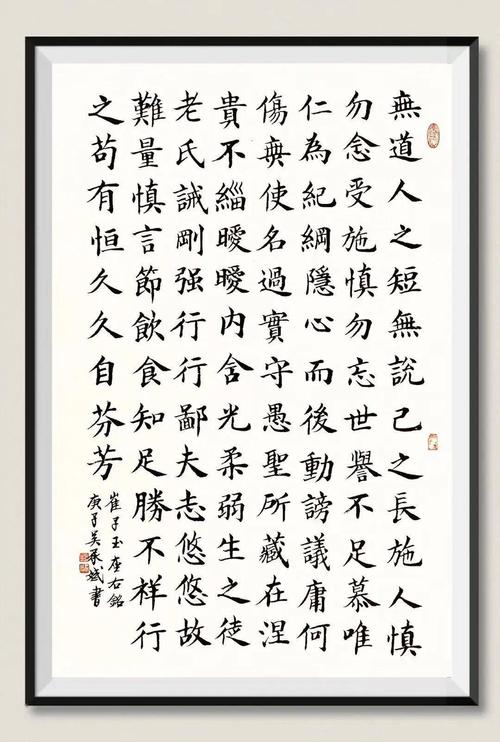 無道人之短無説己之長施人慎
勿念受施慎勿忘世譽不足慕唯
仁為紀綱隱心而後動謗議庸何
傷無使名過實守愚聖所藏在涅
貴不緇曖曖内含光柔弱生之徒
老氏誡剛强行行鄙夫志悠悠故
難量慎言節飲食知足勝不祥行
之苟有恒久久自芬芳
崔子玉座右銘
庚子吴承斌書